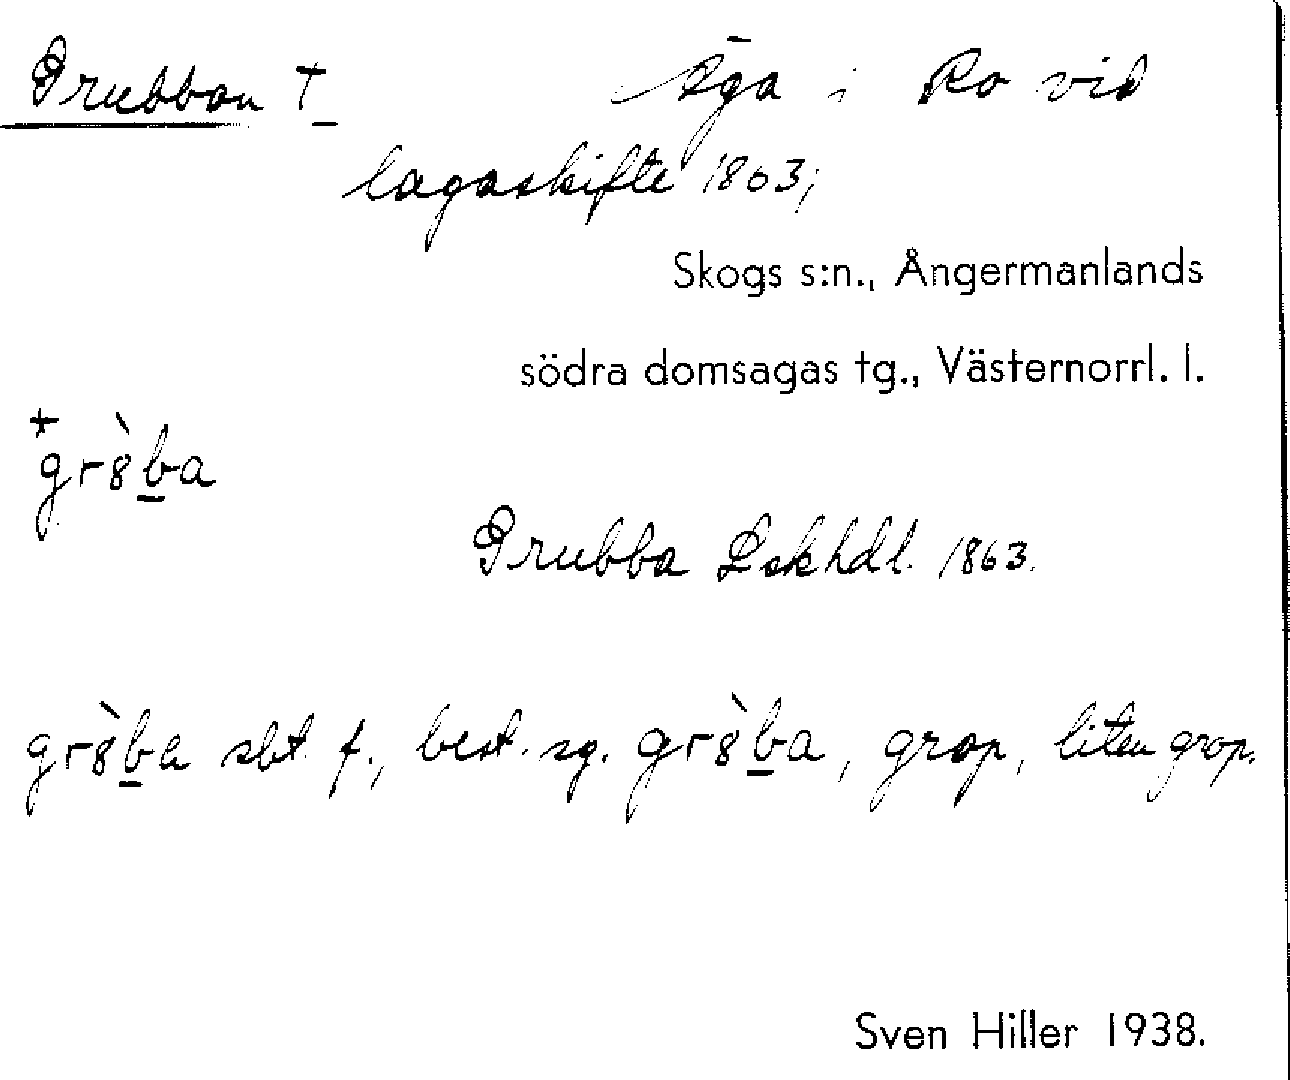 Grubban †
Äga i Ro vid
lagaskifte 1863;
Skogs s:n., Ångermanlands
södra domsagas tg., Västernorrl. l.
+
gr8̀b̲a
Grubba Lskhdl. 1863.
gr8̀b̲a sbt. f., best. sg. gr8̀b̲a, grop, liten grop.
Sven Hiller 1938.